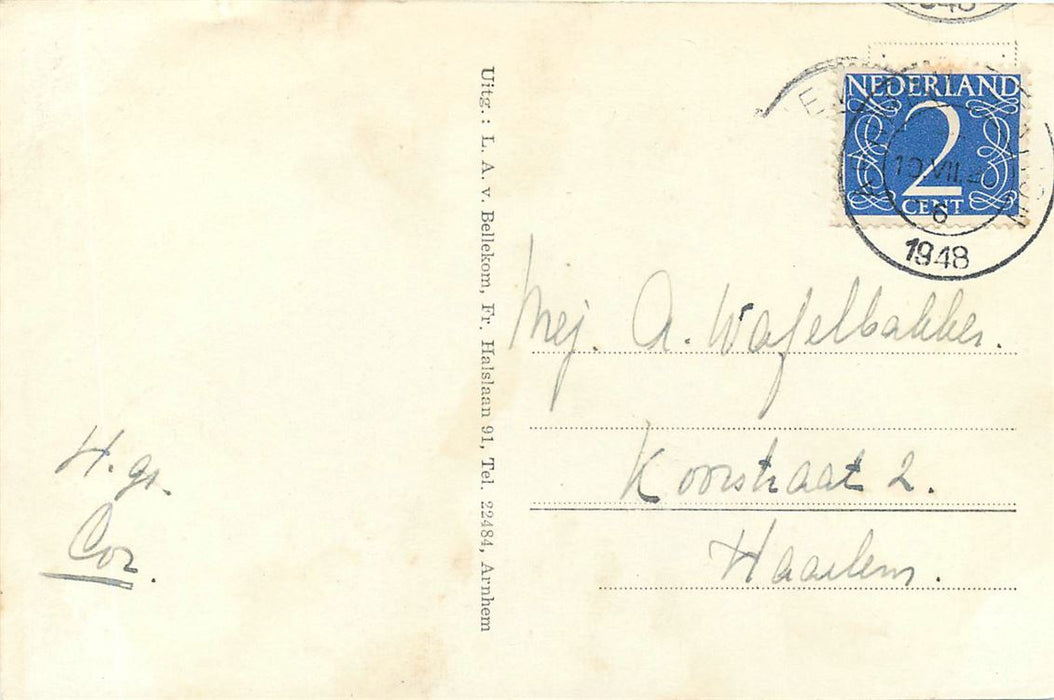 1948
NEDERLAND
2
CENT
6
1948
Mej. A. Wafelbakker.
Koorstraat 2.
Haarlem.
H. gr.
Cor.
Uitg.: L. A. v. Bellekom, Fr. Halslaan 91, Tel. 22484, Arnhem